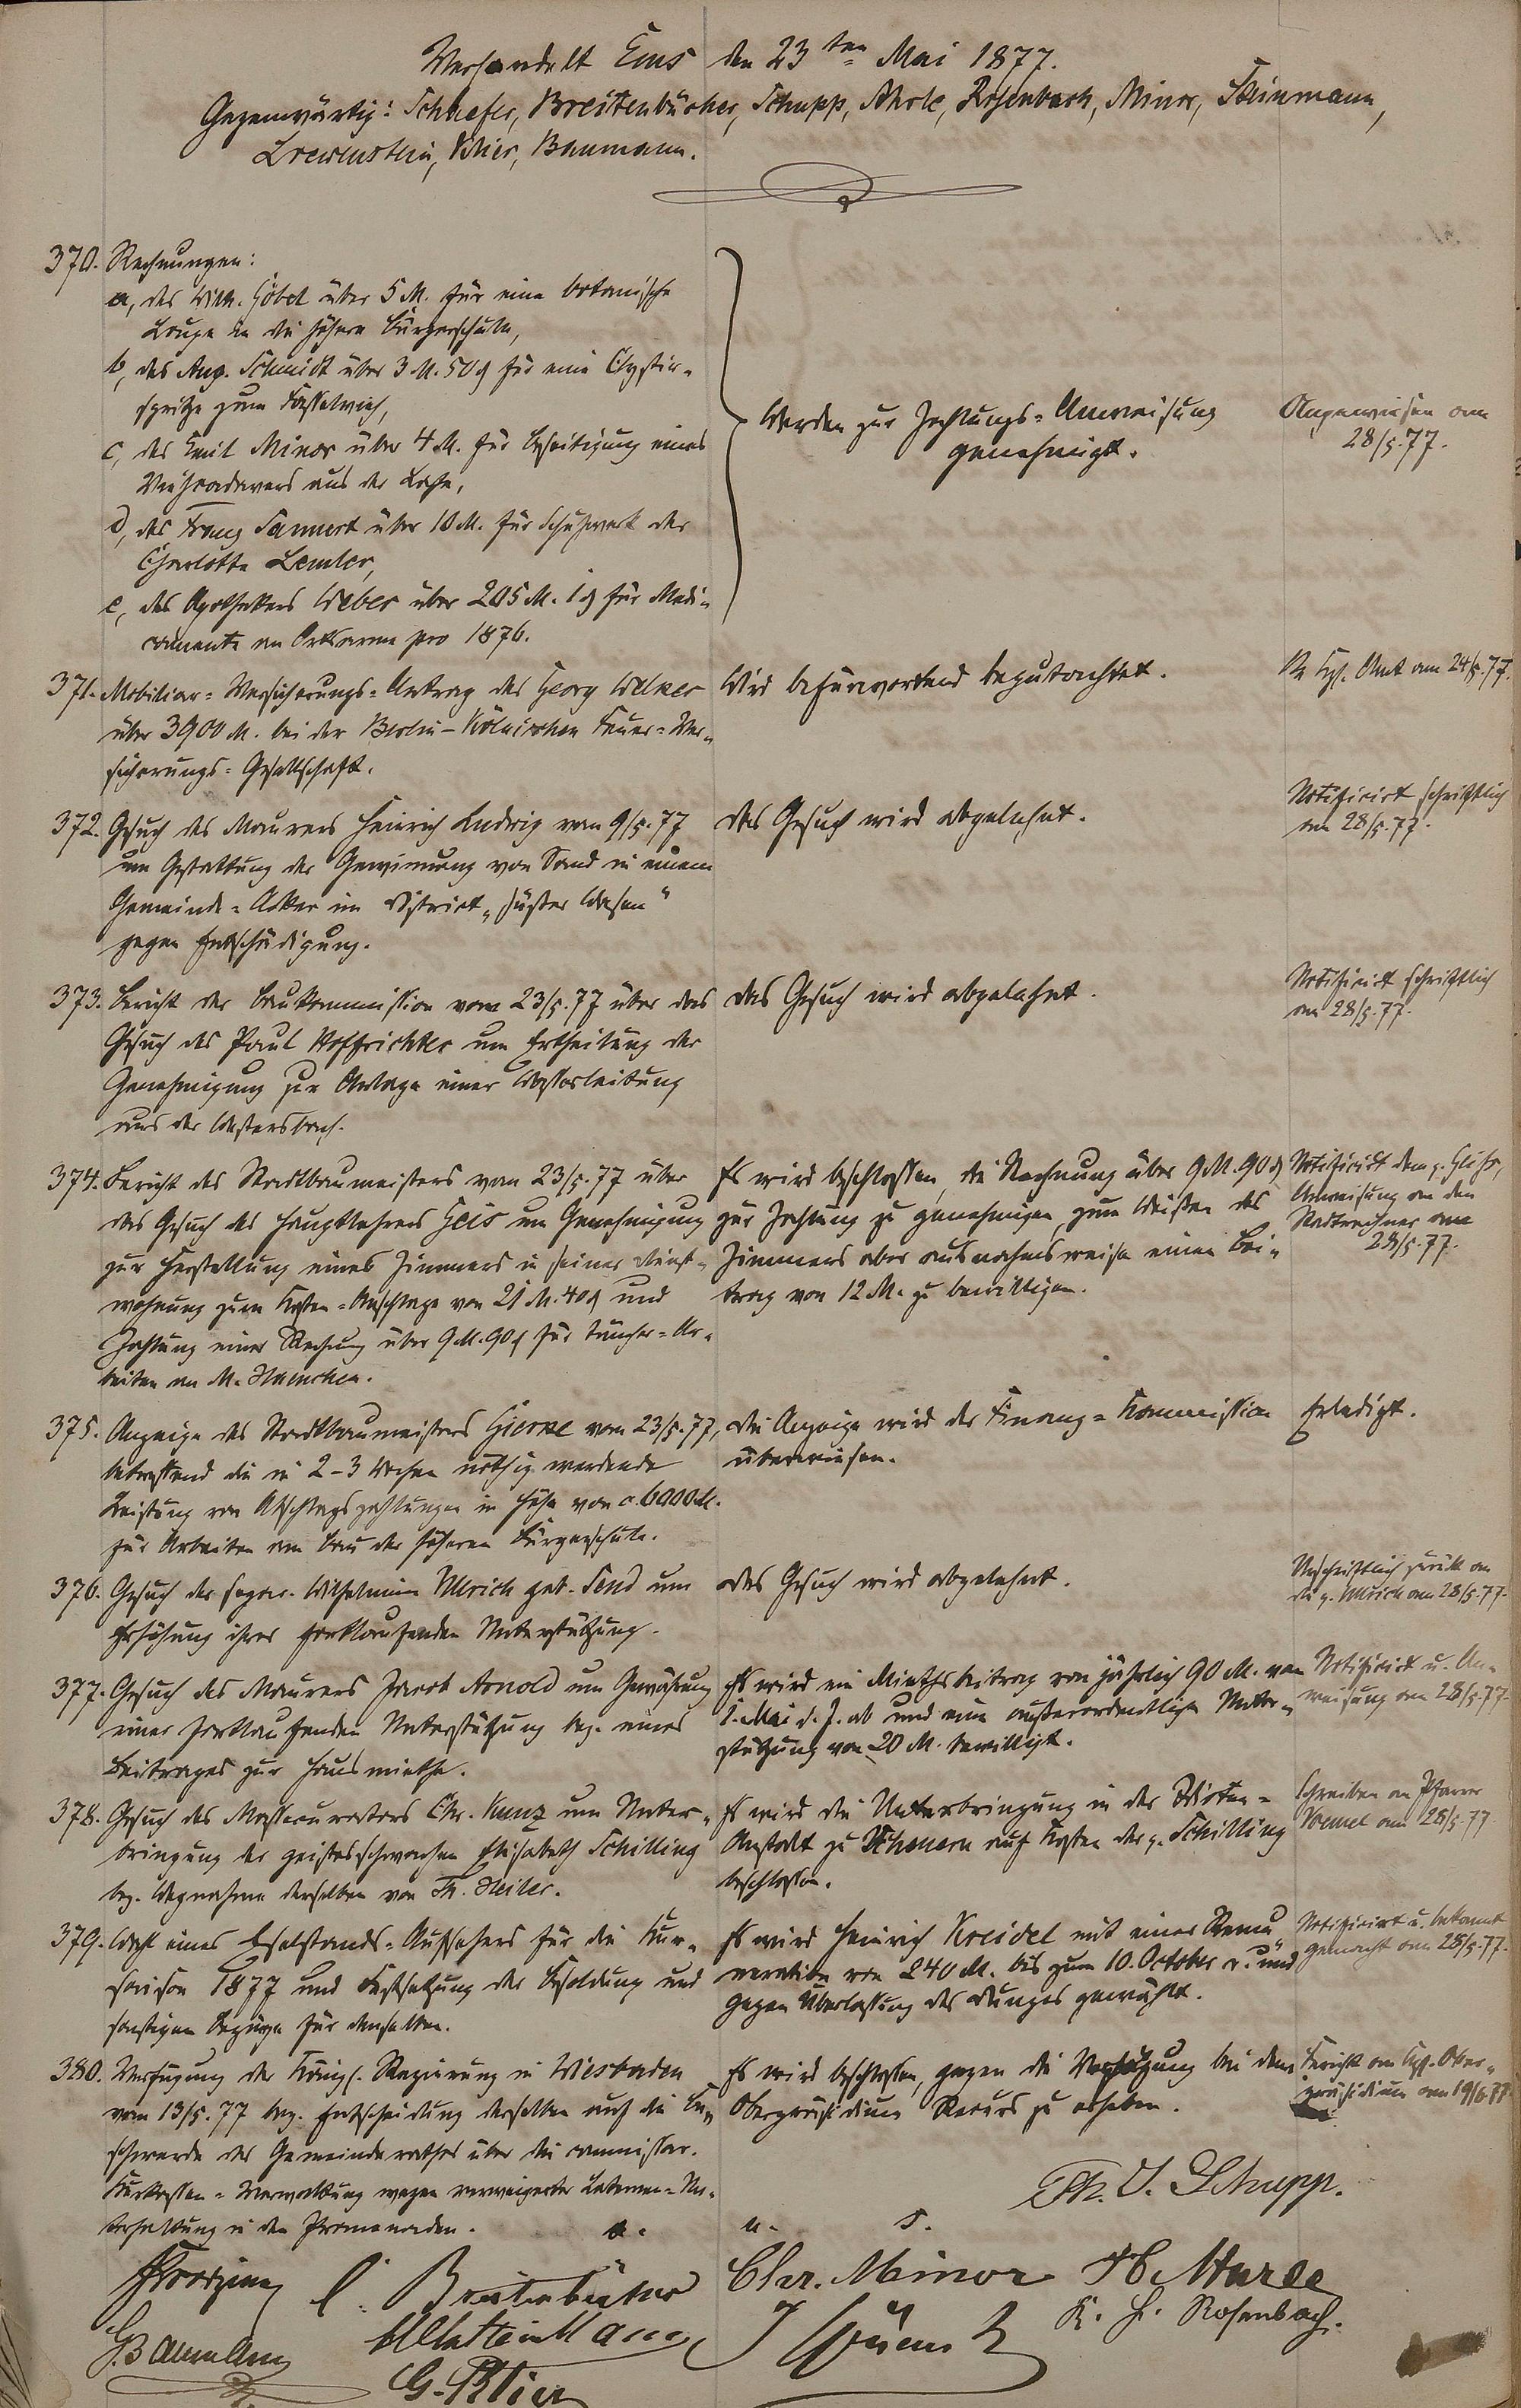 Verhandelt Ems den 23ten Mai 1877.
Gegenwärtig: Schaefer, Breitenbücher, Schupp, Rosenbach, Minor, Steinmann,
Loewenstein, Baumann.
370. Rechnungen:
a, des Wilh. Göbel über 5 M. für eine botanische
Loupe in die höhere Bürgerschule,
b, des Aug. Schmidt über 3 M. 50 ₰ für eine Clystir-
spritze zum Fasselvieh,
c, des Emil Minor über 4 M. für Beseitigung eines
Viehcadavers aus der Lahn,
d, des Franz Sannert über 10 M. für Schuhwerk der
Charlotte Lemler,
e, des Apothekers Weber über 205 M. 1 ₰ für Medi-
camente an Ortsarme pro 1876.
Werden zur Zahlungs-Anweisung
genehmigt.
Angewiesen am
28/5.77.
371. Mobiliar-Versicherungs-Antrag des Georg Welker
über 3900 M. bei der Berlin-Kölnischen Feuer-Ver-
sicherungs-Gesellschaft.
Wird befürwortend begutachtet.
Kgl. Amt am 24/5.77.
372. Gesuch des Maurers Heinrich Ludwig vom 9/5.77
um Gestattung der Gewinnung von Sand in einem
Gemeinde-Acker im District „süßer Wasen"
gegen Entschädigung.
Das Gesuch wird abgelehnt.
Notificirt schriftlich
am 28/5.77.
373. Bericht der Baukommission vom 23/5.77 über das
Gesuch des Paul Hoffrichter um Ertheilung der
Genehmigung zur Anlage einer Wasserleitung
aus der Westersbach.
Das Gesuch wird abgelehnt.
Notificirt schriftlich
am 28/5.77.
374. Bericht des Stadtbaumeisters vom 23/5.77 über
das Gesuch des Hauptlehrers Geis um Genehmigung
zur Herstellung eines Zimmers in seiner Dienst-
wohnung zum Kosten-Anschlage von 21 M. 40 ₰ und
Zahlung einer Rechnung über 9 M. 90 ₰ für Tüncher-Ar-
beiten an M. Hainchen.
Es wird beschlossen, die Rechnung über 9 M. 90 ₰
zur Zahlung zu genehmigen, zum Weißen des
Zimmers aber ausnahmsweise einen Bei-
trag von 12 M. zu bewilligen.
Notificirt dem
Anweisung an den
Stadtrechner am
28/5.77.
375. Anzeige des Stadtbaumeisters Gierke vom 23/5.77,
betreffend die in 2-3 Wochen nöthig werdende
Leistung von Abschlagszahlungen in Höhe von c. 6000 M.
für Arbeiten am Bau der höheren Bürgerschule.
Die Anzeige wird der Finanz-Kommission
überwiesen.
Erledigt.
376. Gesuch der separ. Wilhelmine Ulrich geb. Send um
Erhöhung ihrer fortlaufenden Unterstützung.
Das Gesuch wird abgelehnt.
Urschriftlich zurück an
die p. Ulrich am 28/5.77.
377. Gesuch des Maurers Jacob Arnold um Gewährung
einer fortlaufenden Unterstützung bez. eines
Beitrages zur Hausmiethe.
Es wird ein Miethsbeitrag von jährlich 90 M. vom
1. Mai d. J. ab und eine außerordentliche Unter-
stützung von 20 M. bewilligt.
Notificirt u. An-
weisung am 28/5.77.
378. Gesuch des Massecurators Chr. Kunz um Unter-
bringung der geistesschwachen Elisabeth Schilling
bez. Wegnahme derselben von Th. Heiler.
Es wird die Unterbringung in der Idioten-
Anstalt zu Scheuern auf Kosten der p. Schilling
beschlossen.
Schreiben an Pfarrer
Voemel am 28/5.77.
379. Wahl eines Eselstands-Aufsehers für die Kur-
saison 1877 und Festsetzung der Besoldung und
sonstigen Bezüge für denselben.
Es wird Heinrich Kreidel mit einer Remu-
neration von 240 M. bis zum 10. October c. und
gegen Überlassung des Dunges gewählt.
Notificirt u. bekannt
gemacht am 28/5.77.
380. Verfügung der Königl. Regierung in Wiesbaden
vom 13/5.77 bez. Entscheidung derselben auf die Be-
schwerde des Gemeinderathes über die commissar.
Kurkassen-Verwaltung wegen verweigerter Laternen-Un-
terhaltung in den Promenaden.
Es wird beschlossen, gegen die Verfügung bei dem
Oberpräsidium Recurs zu erheben.
Bericht an Kgl. Ober-
präsidium am 19/6.77.
a. u. s.
Th. J. Schupp.
C. Breitenbücher
Chr. Minor
K. H. Rosenbach.
G. Baumann